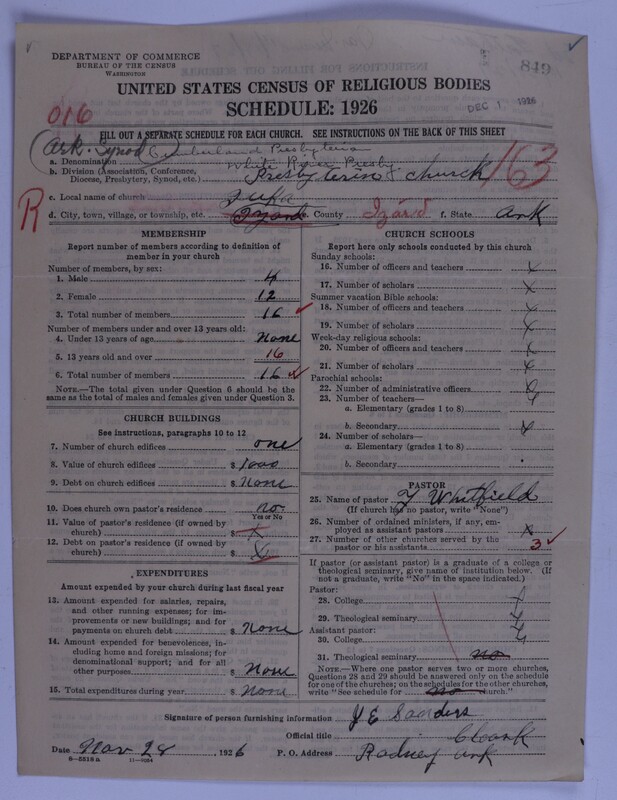 DEPARTMENT OF COMMERCE
BUREAU OF THE CENSUS
WASHINGTON
849
UNITED STATES CENSUS OF RELIGIOUS BODIES
SCHEDULE: 1926
DEC 1 1926
016
FILL OUT A SEPARATE SCHEDULE FOR EACH CHURCH. SEE INSTRUCTIONS ON THE BACK OF THIS SHEET
Ark. Synod
163
a. Denomination Cumberland Presbyteria
White River Presby
b. Division (Association, Conference, Diocese, Presbytery, Synod, etc.) Presbyterin church
c. Local name of church
R
d. City, town, village, or township, etc. e. County Izard f. State Ark
MEMBERSHIP
Report number of members according to definition of member in your church
Number of members, by sex:
1. Male 4
2. Female 12
3. Total number of members 16
Number of members under and over 13 years old:
4. Under 13 years of age None
5. 13 years old and over 16
6. Total number of members 16
NOTE.—The total given under Question 6 should be the same as the total of males and females given under Question 3.
CHURCH BUILDINGS
See instructions, paragraphs 10 to 12
7. Number of church edifices one
8. Value of church edifices $ 1000
9. Debt on church edifices $ None
10. Does church own pastor's residence no
Yes or No
11. Value of pastor's residence (if owned by church) $ x
12. Debt on pastor's residence (if owned by church) $ x
EXPENDITURES
Amount expended by your church during last fiscal year
13. Amount expended for salaries, repairs, and other running expense; for improvements or new buildings; and for payments on church debt $ None
14. Amount expended for benevolences, including home and foreign missions; for denominational support; and for all other purposes $ None
15. Total expenditures during year $ None
CHURCH SCHOOLS
Report here only schools conducted by this church
Sunday schools:
16. Number of officers and teachers x
17. Number of scholars x
Summer vacation Bible schools:
18. Number of officers and teachers x
19. Number of scholars x
Week-day religious schools:
20. Number of officers and teachers x
21. Number of scholars x
Parochial schools:
22. Number of administrative officers
23. Number of teachers—
a. Elementary (grades 1 to 8)
b. Secondary x
24. Number of scholars—
a. Elementary (grades 1 to 8)
b. Secondary
PASTOR
25. Name of pastor Whitfield
(If church has no pastor, write "None")
26. Number of ordained ministers, if any, employed as assistant pastors x
27. Number of other churches served by the pastor or his assistants 3
If pastor (or assistant pastor) is a graduate of a college or theological seminary, give name of institution below. (If not a graduate, write "No" in the space indicated.)
Pastor:
28. College x
29. Theological seminary x
Assistant pastor:
30. College x
31. Theological seminary no
NOTE.—Where one pastor serves two or more churches, Questions 28 and 29 should be answered only on the schedule for one of the churches; on the schedules for the other churches, write "See schedule for no church."
Signature of person furnishing information J E Saaders
Official title Cleark
Date Nov 28, 1926 P. O. Address Rodney Ark
8-5518a 11-9264